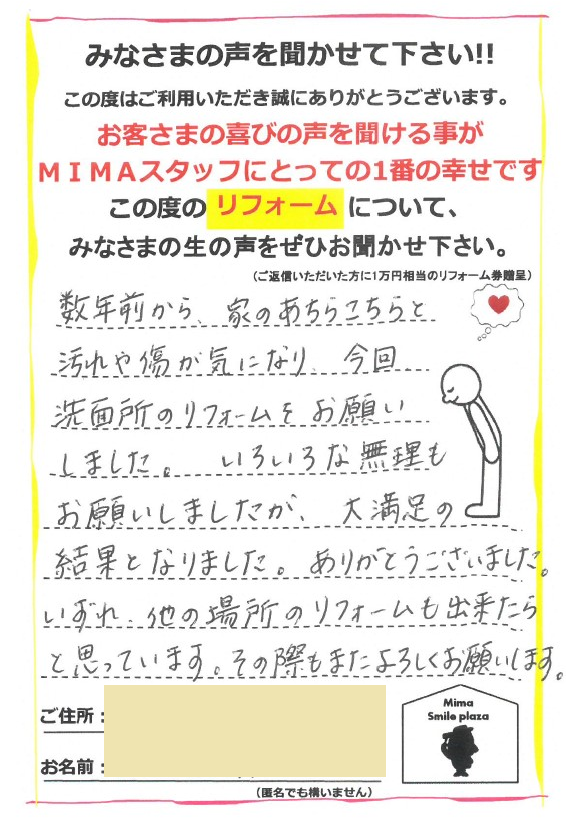 みなさまの声を聞かせて下さい!!
この度はご利用いただき誠にありがとうございます。
お客さまの喜びの声を聞ける事が
MIMAスタッフにとっての1番の幸せです
この度の リフォーム について、
みなさまの生の声をぜひお聞かせ下さい。
(ご返信いただいた方に1万円相当のリフォーム券贈呈)
数年前から、家のあちらこちらと
汚れや傷が気になり、今回
洗面所のリフォームをお願い
しました。 いろいろな無理も
お願いしましたが、大満足の
結果となりました。ありがとうございました。
いずれ、他の場所のリフォームも出来たら
と思っています。その際もまたよろしくお願いします。
ご住所:
お名前:
(匿名でも構いません)
Mima
Smile plaza